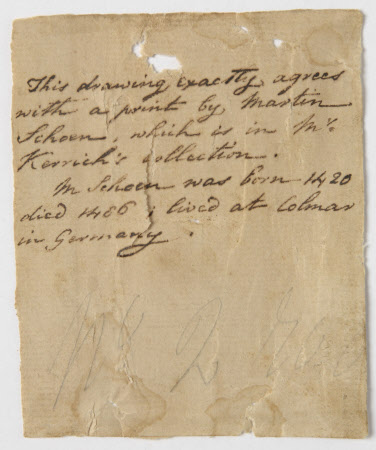 This drawing exactly agrees
with a print by Martin
Schoen, which is in Mr.
Kerrich's collection.
M Schoen was born 1420
died 1486; lived at Colmar
in Germany.
2